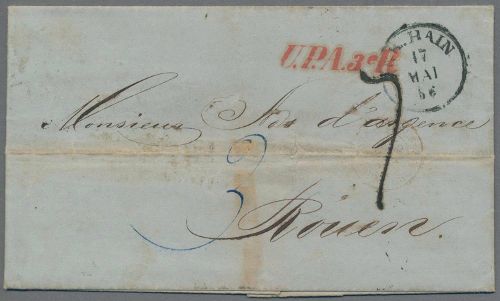 U.P.A.3e R.
RAIN
17
MAI
56
Monsieur Ador d'argence
3
7
Rouen.